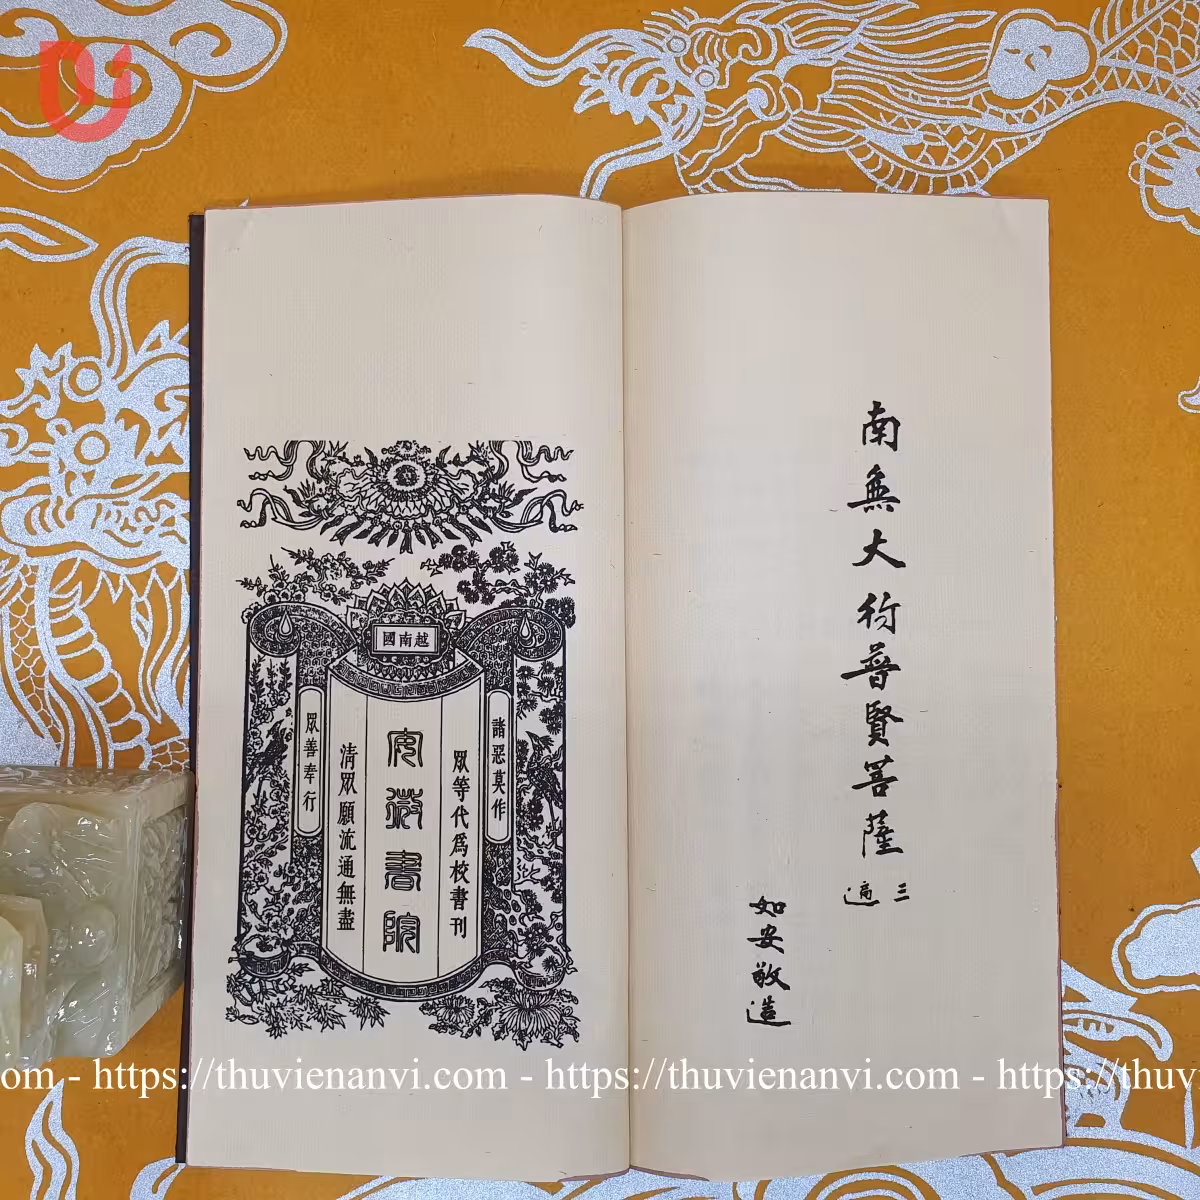 南無大行普賢菩薩
三遍
如安敬造
越南國
諸惡莫作
眾等代爲校書刊
安微書院
清眾願流通無盡
眾善奉行
om - https://thuvienanvi.com - https://thuvienanvi.com - https://thuvi